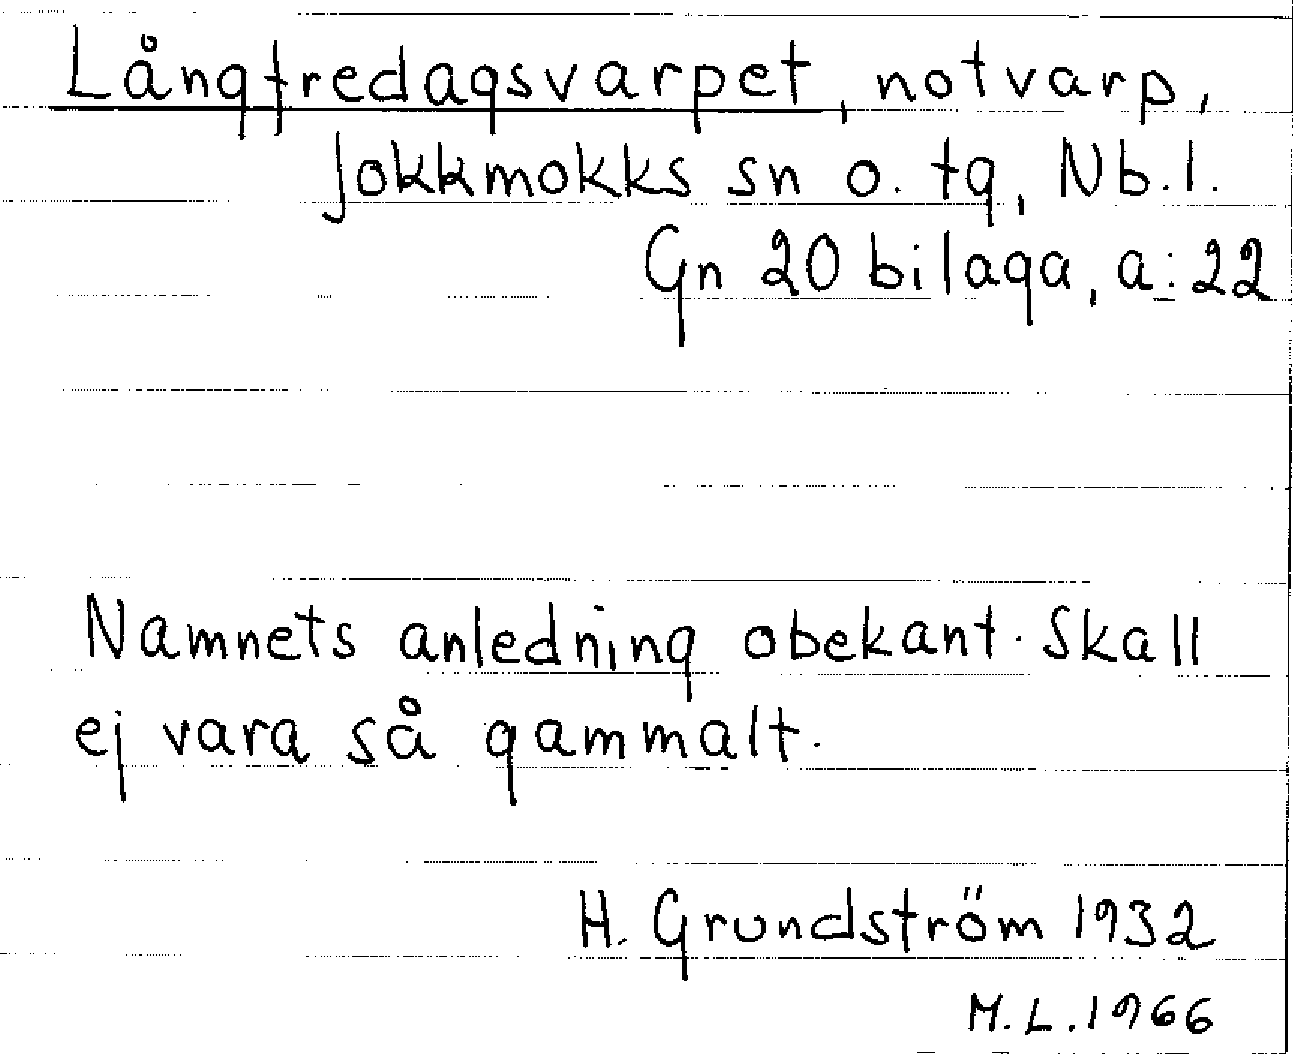 Långfredagsvarpet, notvarp,
Jokkmokks sn o. tg, Nb.l.
Gn 20 bilaga, a: 22
Namnets anledning obekant. Skall
ej vara så gammalt.
H. Grundström 1932
M.L. 1966